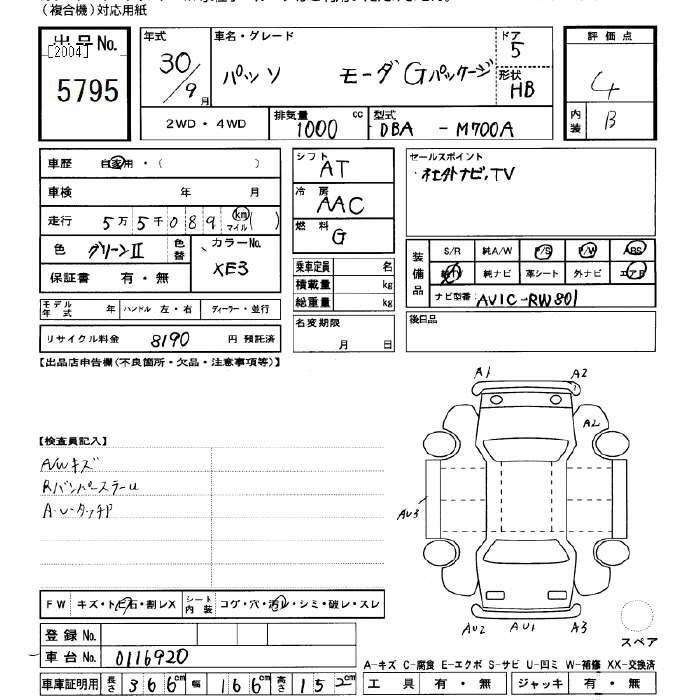 (複合機)対応用紙
出品No. 年式 車名・グレード ドア 評価点
[2004] 30 パッソ モーダGパッケージ 5 4
5795 9月 形状 HB
2WD・4WD 排気量 1000 cc 型式 DBA - M700A 内装 B
車歴 自家用・( ) シフト AT セールスポイント
・社外ナビ,TV
車検 年 月 冷房 AAC
走行 5万5千089 km マイル ( ) 燃料 G
色 グリーンⅡ 色替 カラーNo. XE3 装備品 S/R 純A/W P/S P/W ABS
保証書 有・無 乗車定員 名 純TV 純ナビ 革シート 外ナビ エアB
積載量 kg ナビ型番 AVIC-RW801
モデル年式 年 ハンドル 左・右 ディーラー・並行 総重量 kg
リサイクル料金 8190 円 預託済 名変期限 月 日 後日品
【出品店申告欄(不良箇所・欠品・注意事項等)】
A1 A2
A2
【検査員記入】
A/Wキズ
Rバンパーステール
A・U・タッチP
AU3
FW キズ・トビ石・割レX シート内装 コゲ・穴・汚レ・シミ・破レ・スレ
AU2 AU1 A3
登録No.
車台No. 0116920 スペア
A-キズ C-腐食 E-エクボ S-サビ U-凹ミ W-補修 XX-交換済
車庫証明用 長さ 366cm 幅 166cm 高さ 152cm 工具 有・無 ジャッキ 有・無